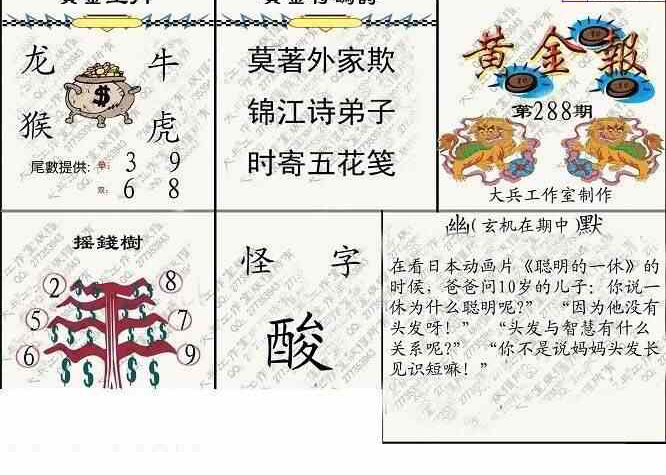 龙 牛
猴 虎
尾數提供: 单: 3 9
双: 6 8
莫著外家欺
锦江诗弟子
时寄五花笺
黄金報
第288期
大兵工作室制作
摇錢樹
2 8
5 7
6 9
怪 字
酸
幽(玄机在期中)默
在看日本动画片《聪明的一休》的
时侯，爸爸问10岁的儿子：你说一
休为什么聪明呢?” “因为他没有
头发呀！” “头发与智慧有什么
关系呢?” “你不是说妈妈头发长
见识短嘛！”